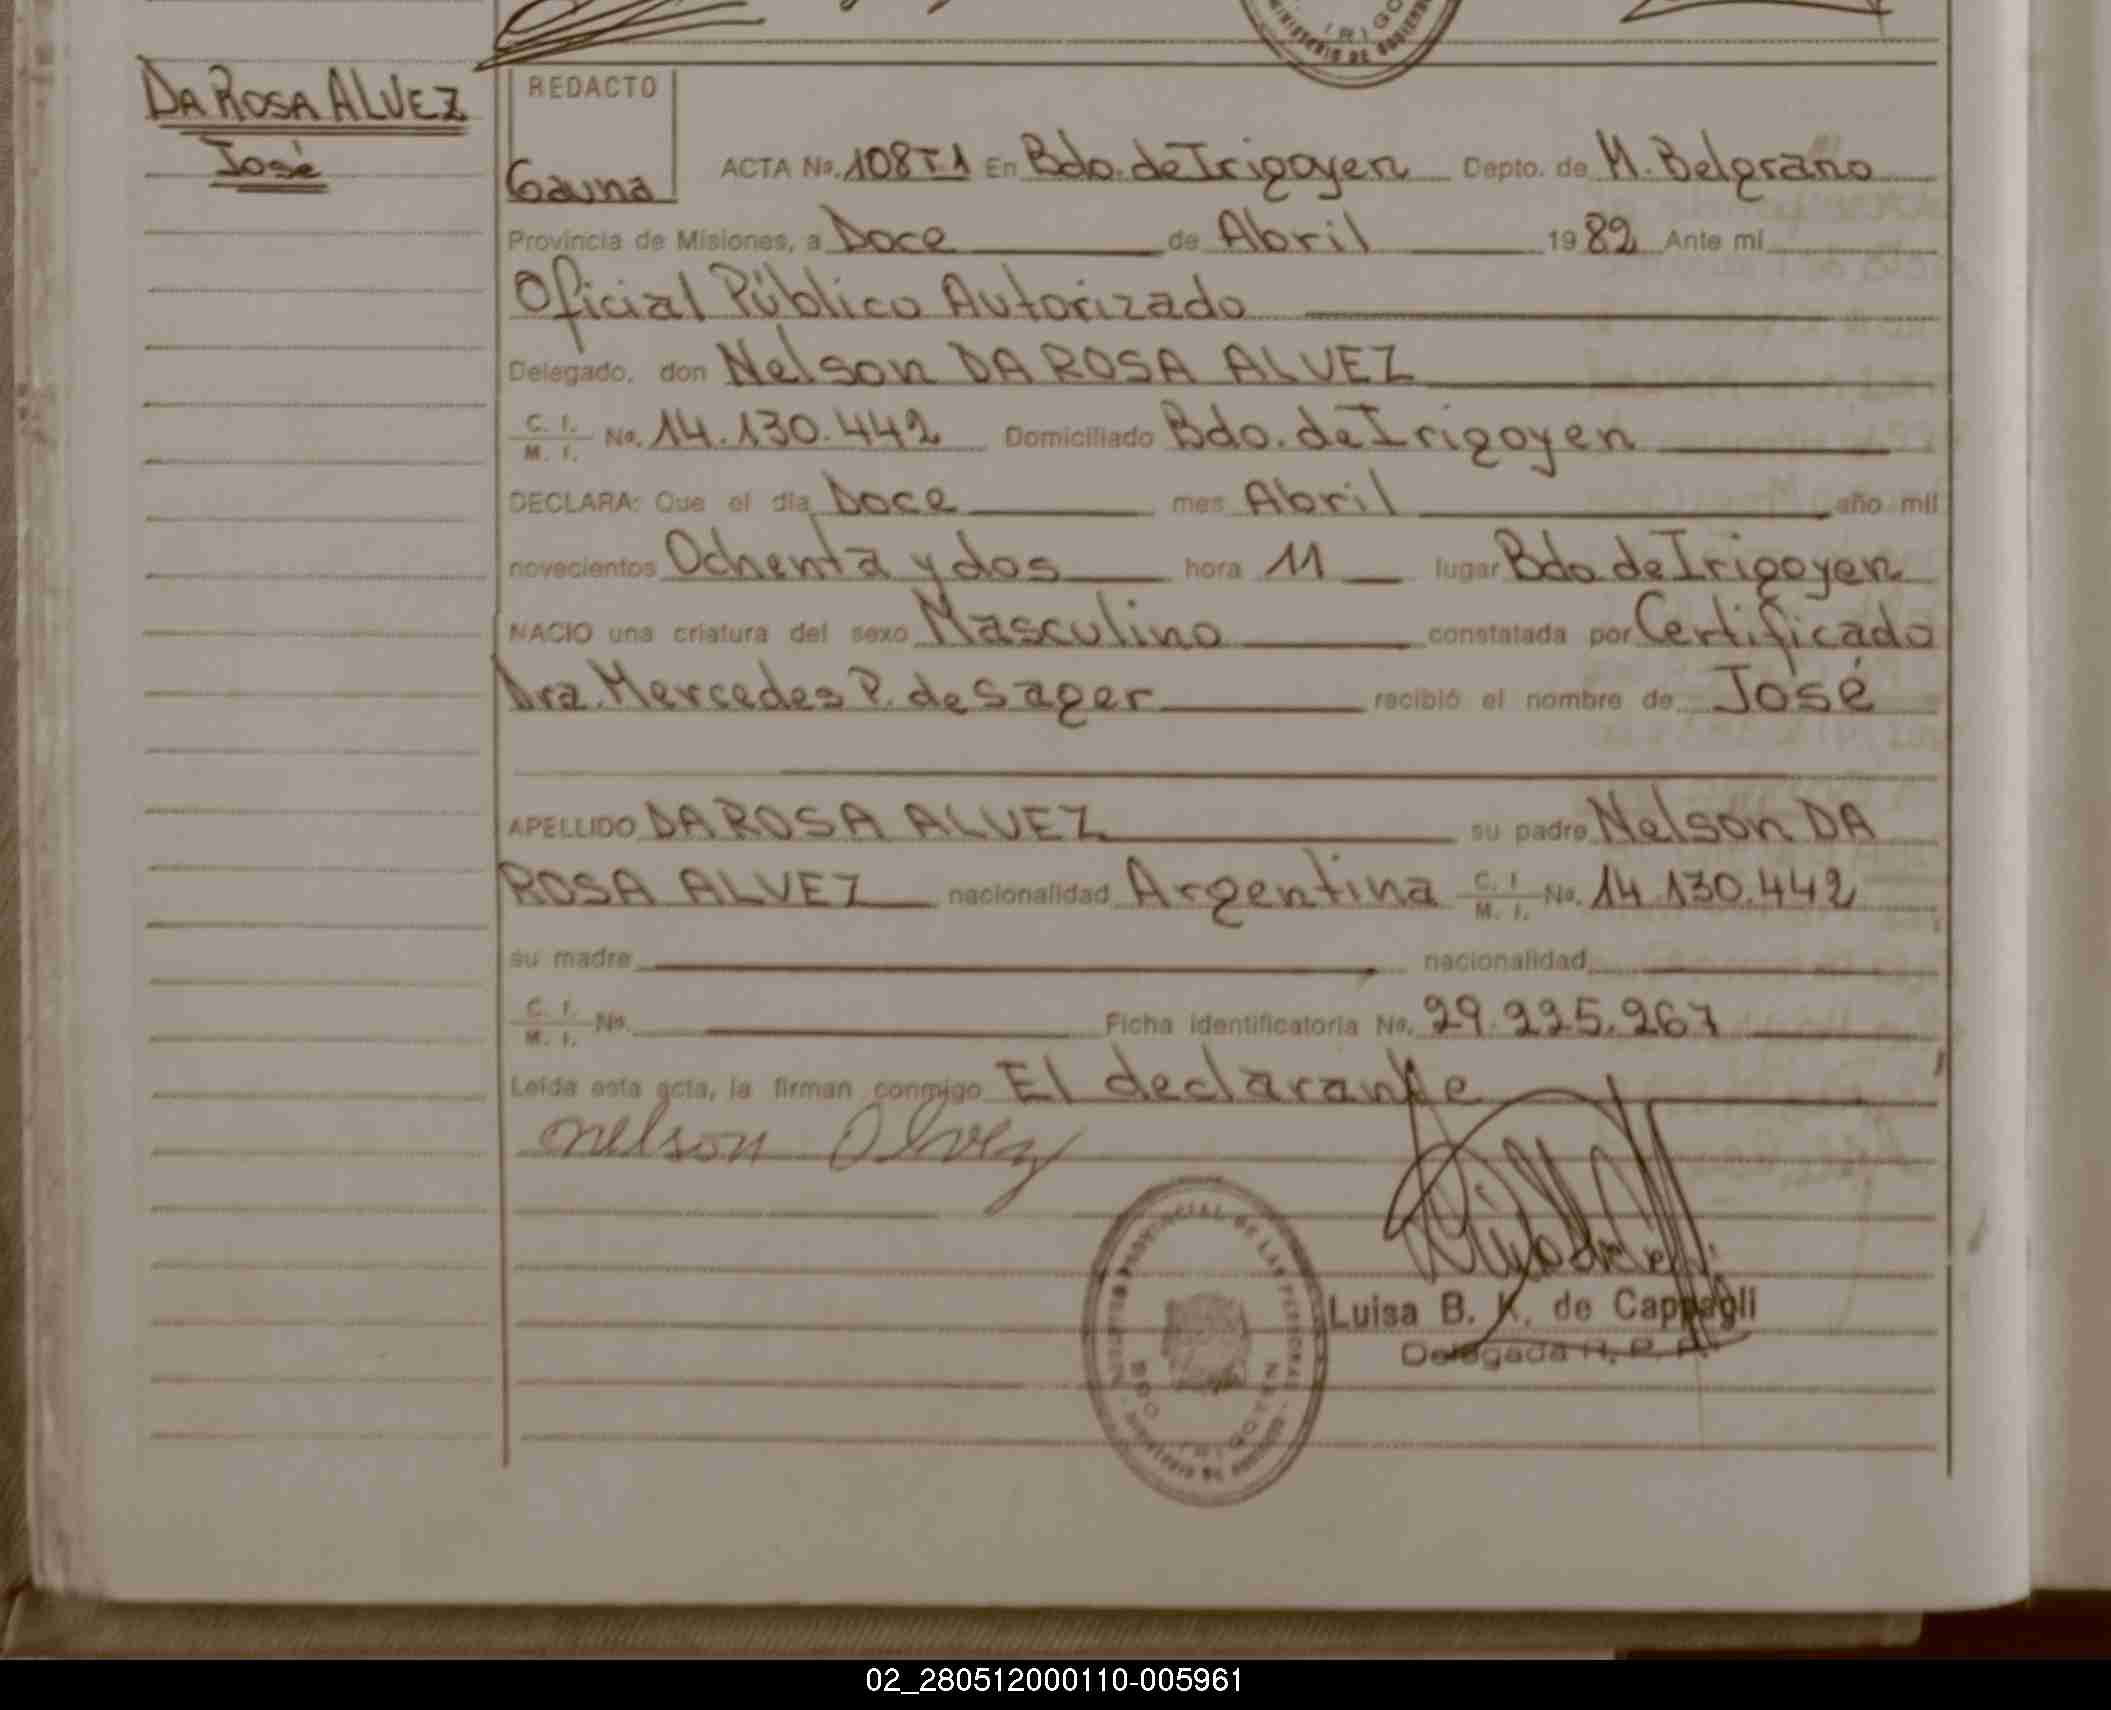 IRIGO
MINISTERIO DE GOBIERNO
DA ROSA ALVEZ
José
REDACTO
Gauna
ACTA No. 108 T1 En Bdo. de Irigoyen Depto. de M. Belgrano
Provincia de Misiones, a Doce de Abril 1982 Ante mi
Oficial Público Autorizado
Delegado, don Nelson DA ROSA ALVEZ
C. I. M. I. No. 14.130.442 Domiciliado Bdo. de Irigoyen
DECLARA: Que el día Doce mes Abril año mil
novecientos Ochenta y dos hora 11 lugar Bdo. de Irigoyen
NACIO una criatura del sexo Masculino constatada por Certificado
Dra. Mercedes P. de Sager recibió el nombre de José
APELLIDO DA ROSA ALVEZ su padre Nelson DA
ROSA ALVEZ nacionalidad Argentina C. I. M. I. No. 14.130.442
su madre nacionalidad
C. I. M. I. No. Ficha identificatoria No. 29.225.267
Leída esta acta, la firman conmigo El declarante
nelson Alvez
PROVINCIAL DE LAS PERSONAS
BDO. IRIGOYEN
MINISTERIO DE GOBIERNO
Luisa B. K. de Cappagli
Delegada R. P. P.
02_280512000110-005961